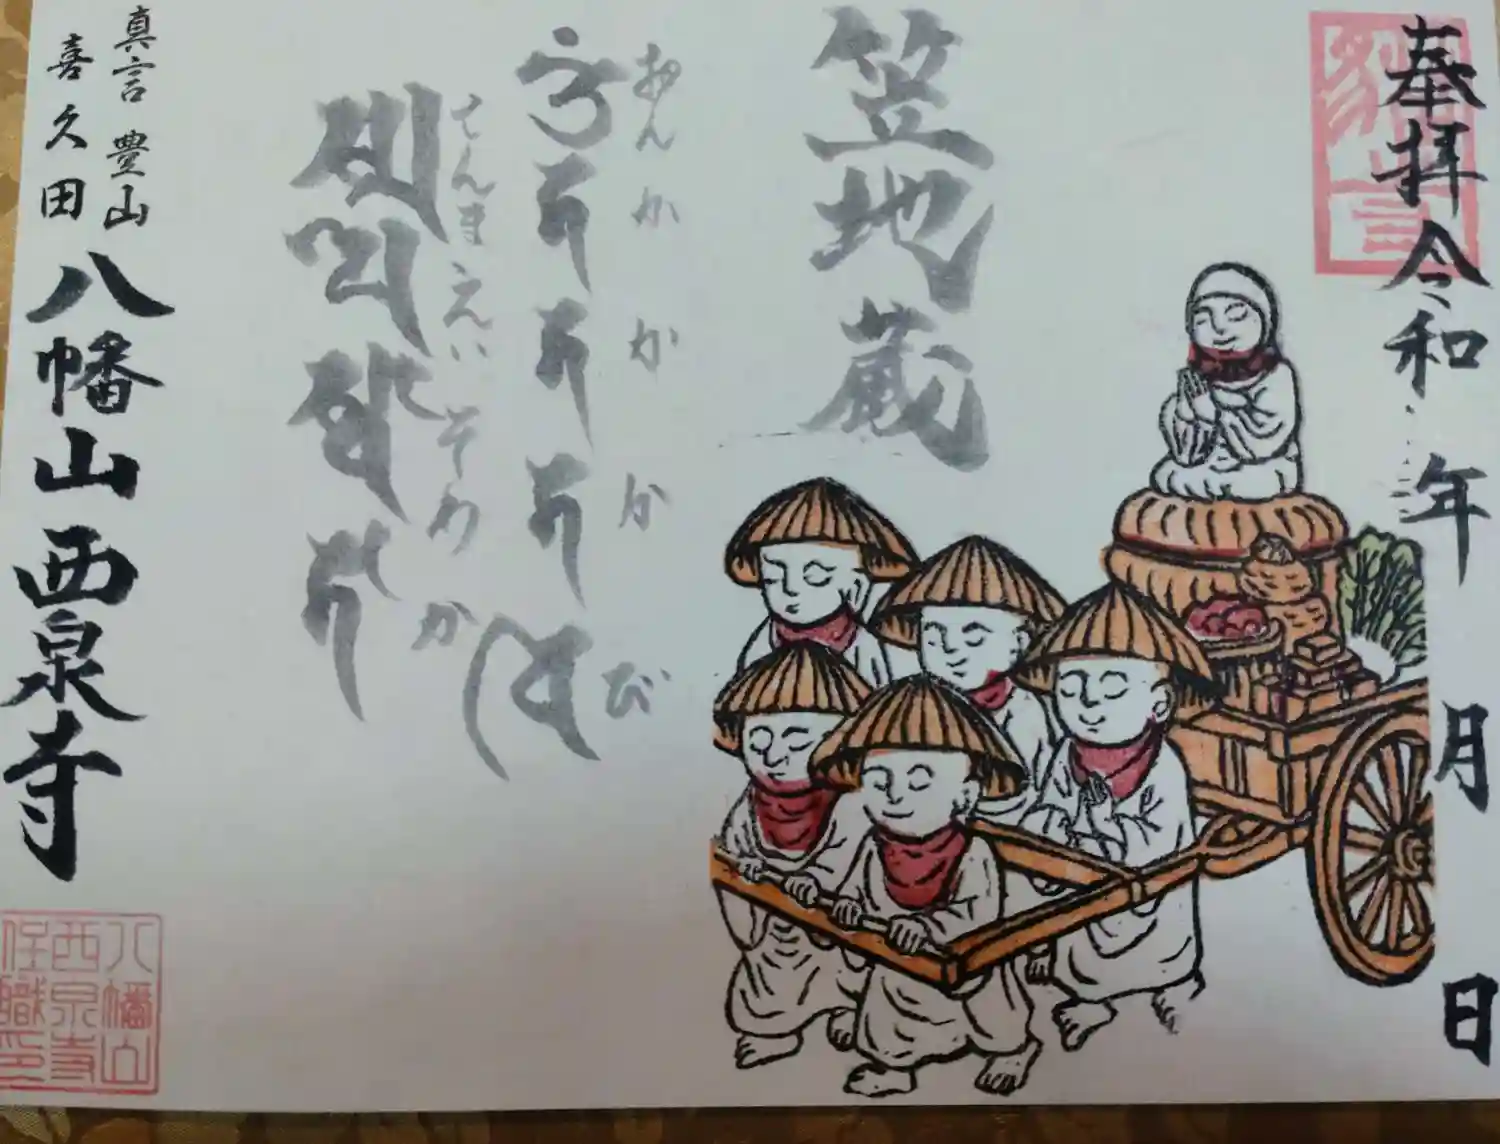 奉拝 令和 年 月 日
笠地蔵
おんかかかび
さんまえいそわか
真言 豊山
喜久田
八幡山 西泉寺
八幡山
西泉寺
住職印